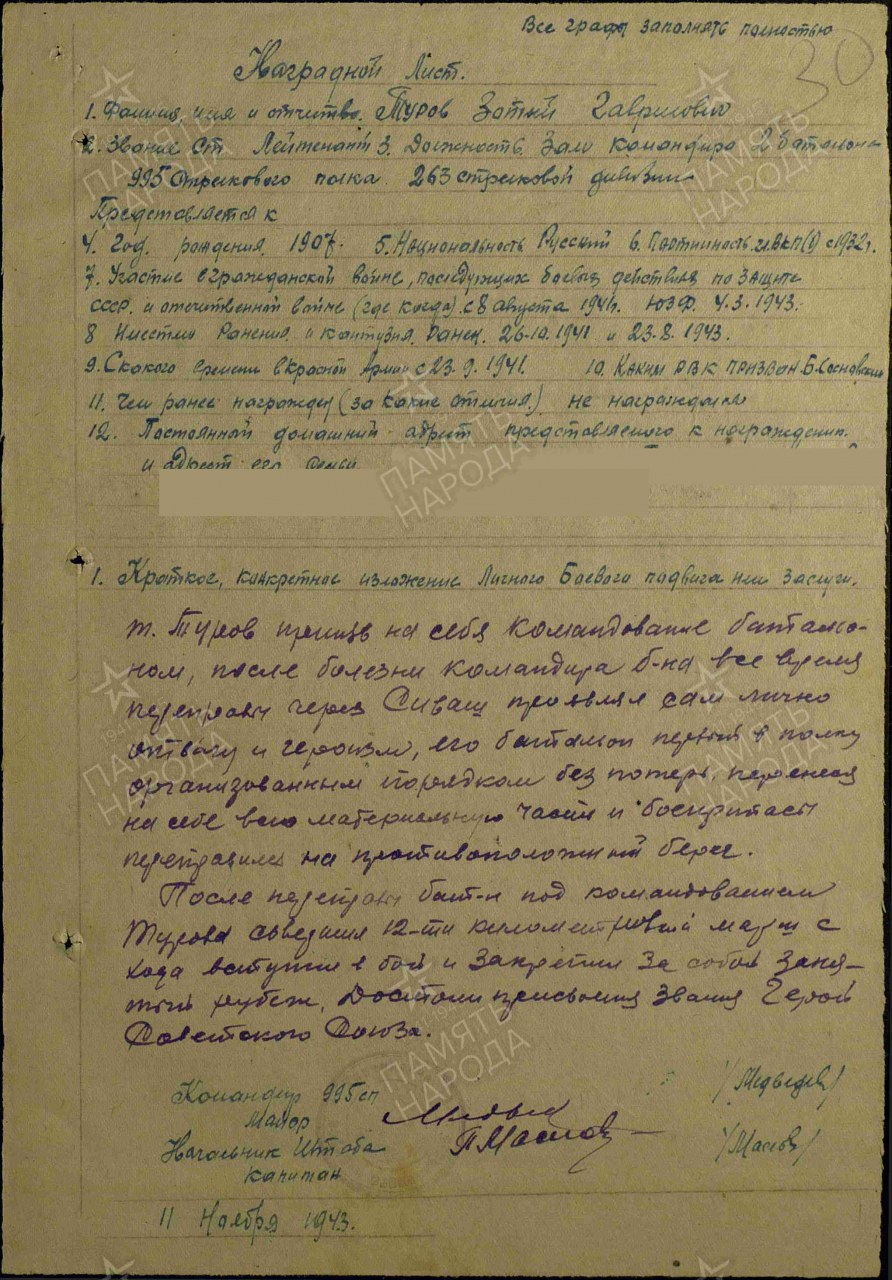 Все графы заполнять полностью
30
Наградной Лист.
1. Фамилия, имя и отчество. Туров Гаврилович
2. Звание Ст. Лейтенант 3. Должность. Зам командира 2 батальона
995 Стрелкового полка 263 стрелковой дивизии
Представляется к
4. Год рождения 1907. 5. Национальность Русский 6. Партийность чл. ВКП(б) с 1932 г.
7. Участие в гражданской войне, последующих боевых действиях по защите
СССР. и отечественной войне (где когда) с 8 августа 1941 г. ЮЗФ. 4.3.1943.
8 Имеет ли Ранения и контузия. Ранен. 26.10.1941 и 23.8.1943.
9. С какого времени в Красной Армии с 23.9.1941. 10. Каким РВК призван.
11. Чем ранее награжден (за какие отличия.) не награждался
12. Постоянной домашний адрест представляемого к награждению.
и Адрест его семьи
1. Краткое, конкретное изложение Личного Боевого подвига или заслуги.
т. Туров приняв на себя командование батальо-
ном, после болезни командира б-на все время
переправы через Сиваш проявлял сам лично
отвагу и героизм, его батальон первый в полку
организованным порядком без потерь, перенеся
на себе всю материальную часть и боеприпасы
переправился на противоположный берег.
После переправы бат-н под командованием
Турова совершил 12-ти километровый марш с
хода вступил в бой и закрепил за собой заня-
тый рубеж. Достоин присвоения звания Герой
Советского Союза.
Командир 995 сп
Майор /Медведев/
Начальник Штаба
капитан П Маслов /Маслов/
11 Ноября 1943.
ПАМЯТЬ НАРОДА
ПАМЯТЬ НАРОДА
ПАМЯТЬ НАРОДА
ПАМЯТЬ НАРОДА
ПАМЯТЬ НАРОДА
ПАМЯТЬ НАРОДА